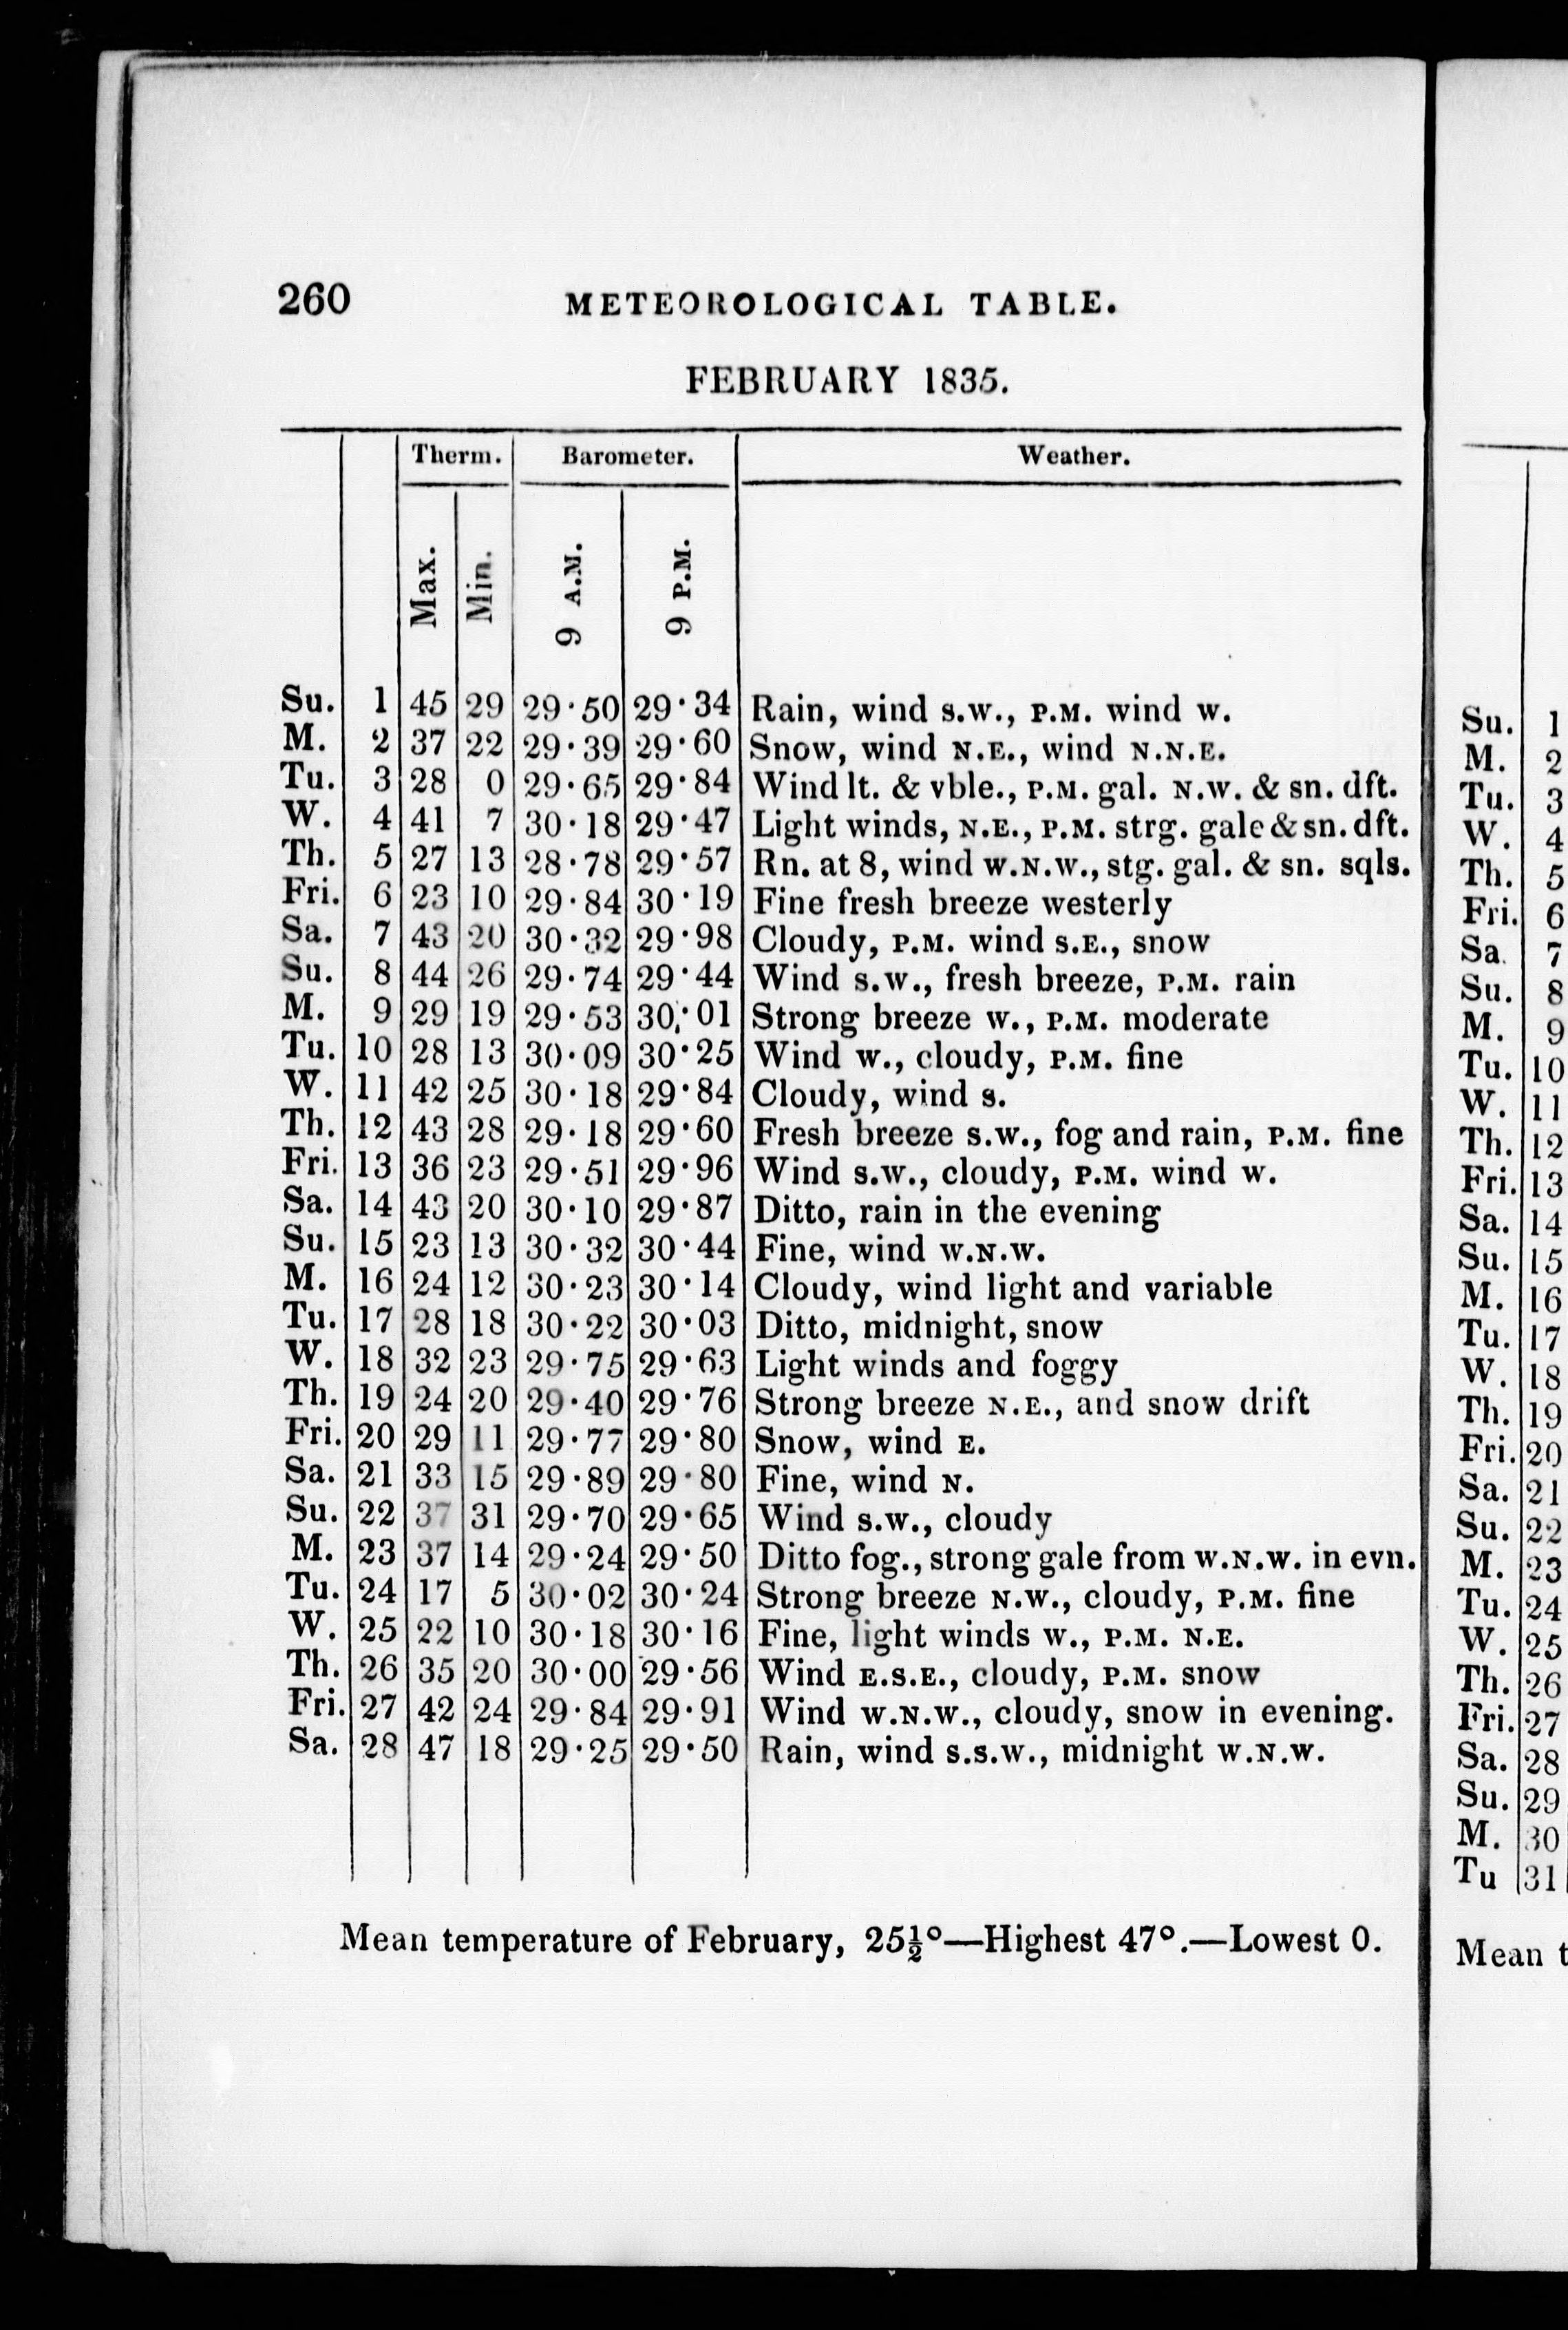 260 METEOROLOGICAL TABLE.
FEBRUARY 1835.
Therm. Barometer. Weather.
Max. Min. 9 A.M. 9 P.M.
Su. 1 45 29 29·50 29·34 Rain, wind s.w., P.M. wind w.
M. 2 37 22 29·39 29·60 Snow, wind N.E., wind N.N.E.
Tu. 3 28 0 29·65 29·84 Wind lt. & vble., P.M. gal. N.W. & sn. dft.
W. 4 41 7 30·18 29·47 Light winds, N.E., P.M. strg. gale & sn. dft.
Th. 5 27 13 28·78 29·57 Rn. at 8, wind W.N.W., stg. gal. & sn. sqls.
Fri. 6 23 10 29·84 30·19 Fine fresh breeze westerly
Sa. 7 43 20 30·32 29·98 Cloudy, P.M. wind S.E., snow
Su. 8 44 26 29·74 29·44 Wind s.w., fresh breeze, P.M. rain
M. 9 29 19 29·53 30·01 Strong breeze w., P.M. moderate
Tu. 10 28 13 30·09 30·25 Wind w., cloudy, P.M. fine
W. 11 42 25 30·18 29·84 Cloudy, wind s.
Th. 12 43 28 29·18 29·60 Fresh breeze s.w., fog and rain, P.M. fine
Fri. 13 36 23 29·51 29·96 Wind s.w., cloudy, P.M. wind w.
Sa. 14 43 20 30·10 29·87 Ditto, rain in the evening
Su. 15 23 13 30·32 30·44 Fine, wind W.N.W.
M. 16 24 12 30·23 30·14 Cloudy, wind light and variable
Tu. 17 28 18 30·22 30·03 Ditto, midnight, snow
W. 18 32 23 29·75 29·63 Light winds and foggy
Th. 19 24 20 29·40 29·76 Strong breeze N.E., and snow drift
Fri. 20 29 11 29·77 29·80 Snow, wind E.
Sa. 21 33 15 29·89 29·80 Fine, wind N.
Su. 22 37 31 29·70 29·65 Wind s.w., cloudy
M. 23 37 14 29·24 29·50 Ditto fog., strong gale from W.N.W. in evn.
Tu. 24 17 5 30·02 30·24 Strong breeze N.W., cloudy, P.M. fine
W. 25 22 10 30·18 30·16 Fine, light winds w., P.M. N.E.
Th. 26 35 20 30·00 29·56 Wind E.S.E., cloudy, P.M. snow
Fri. 27 42 24 29·84 29·91 Wind W.N.W., cloudy, snow in evening.
Sa. 28 47 18 29·25 29·50 Rain, wind s.s.w., midnight W.N.W.
Mean temperature of February, 25½°—Highest 47°.—Lowest 0.
Su. 1
M. 2
Tu. 3
W. 4
Th. 5
Fri. 6
Sa. 7
Su. 8
M. 9
Tu. 10
W. 11
Th. 12
Fri. 13
Sa. 14
Su. 15
M. 16
Tu. 17
W. 18
Th. 19
Fri. 20
Sa. 21
Su. 22
M. 23
Tu. 24
W. 25
Th. 26
Fri. 27
Sa. 28
Su. 29
M. 30
Tu 31
Mean t